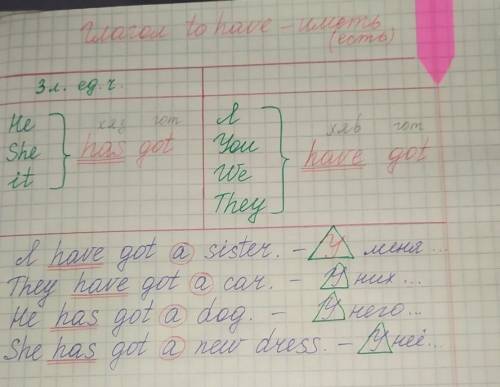 Глагол to have - иметь
(есть)
3 л. ед. ч.
хяз гот
He
She
it
has got
I
You
We
They
хяв гот
have got
I have got a sister. - У меня...
They have got a car. - У них...
He has got a dog. - У него...
She has got a new dress. - У неё...